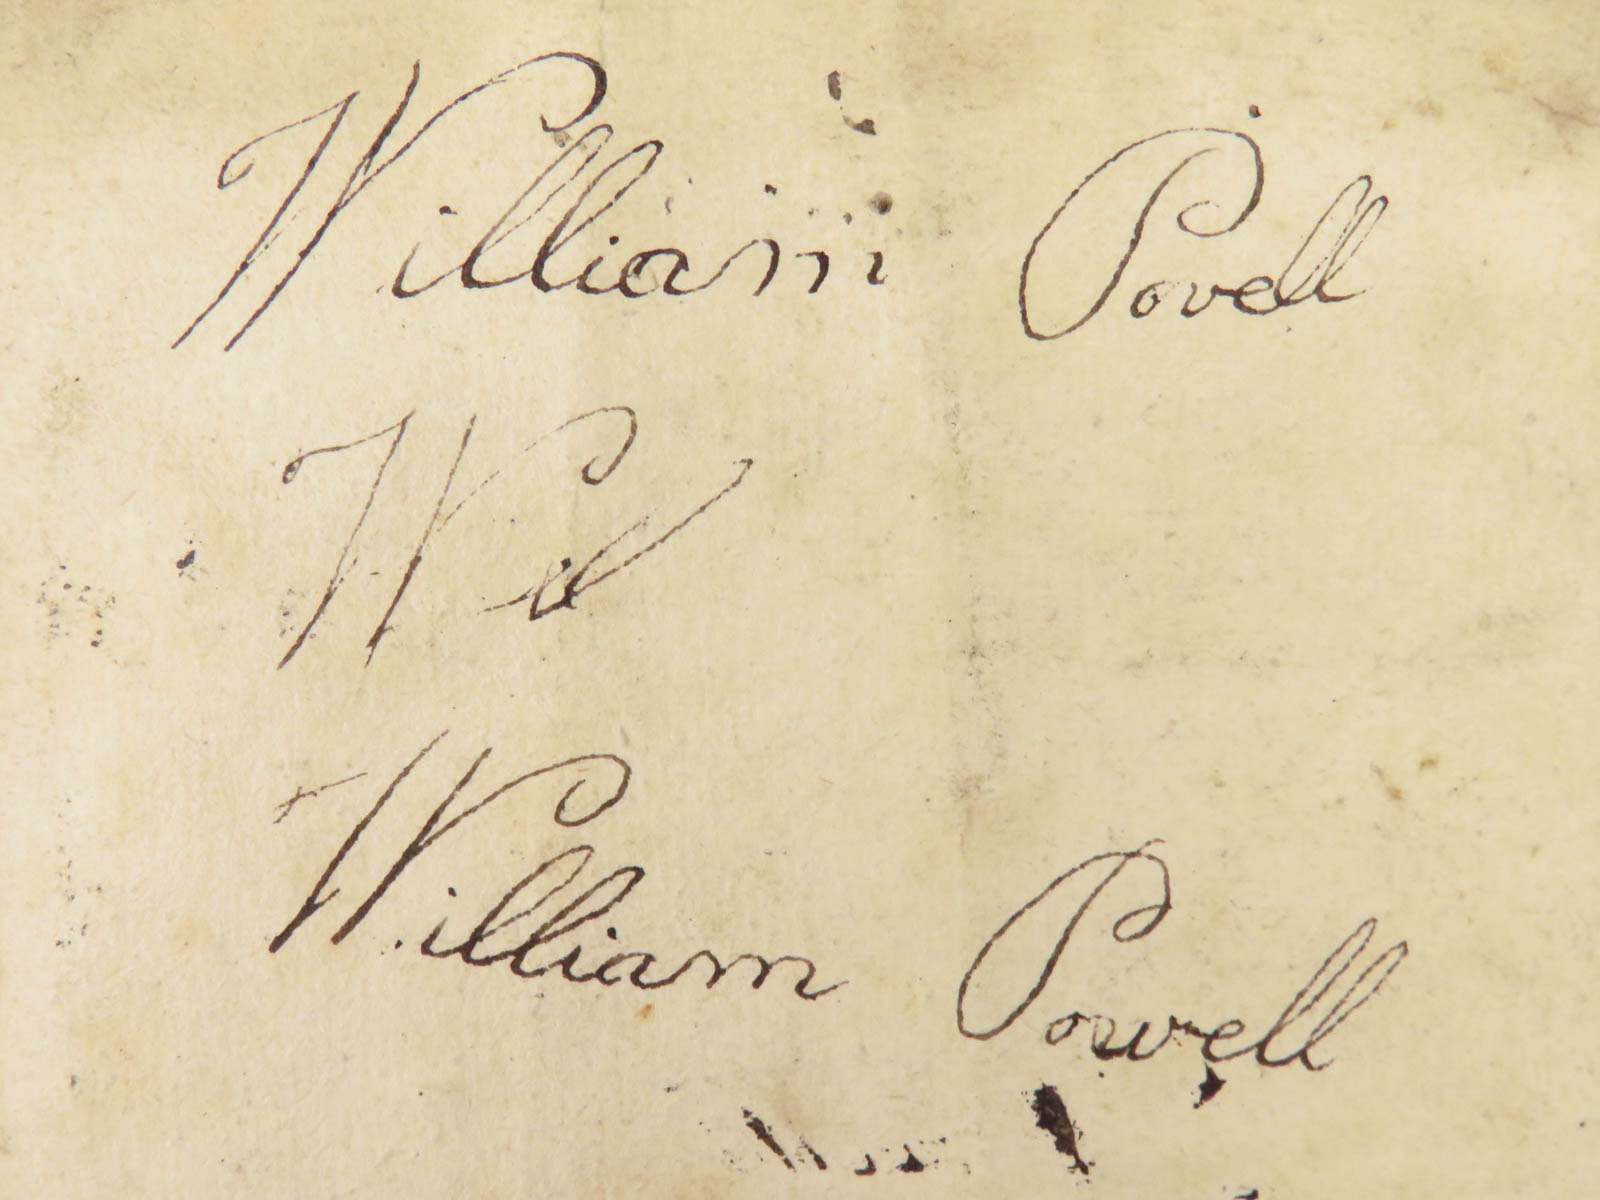 William Povell
W el
William Powell